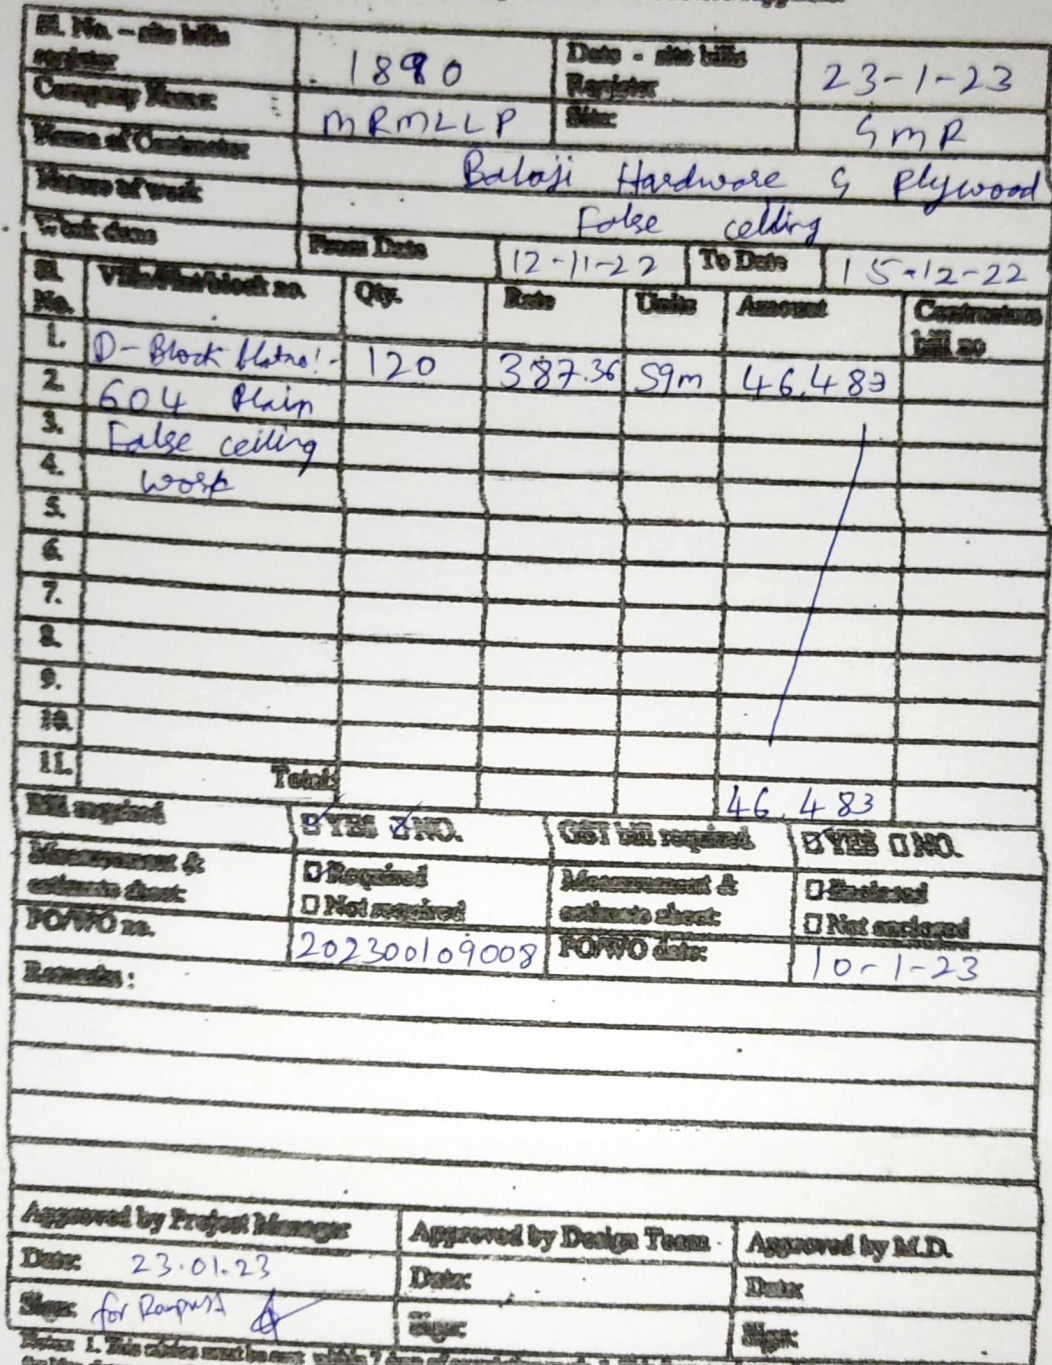 Sl. No. – site bills register 1890 Date - site bills Register 23-1-23
Company Name: MRMLLP Site: GMR
Name of Contractor Balaji Hardware & Plywood
Nature of work False celling
Work done From Date 12-11-22 To Date 15-12-22
Sl. No. Villa/Flat/block no. Qty. Rate Units Amount Contractors bill no
1. D-Block flatno:- 120 387.36 Sqm 46,483
2. 604 Plain
3. False ceiling
4. work
5.
6.
7.
8.
9.
10.
11. Total: 46,483
Bill required YES NO. GST bill required YES NO.
Measurement & estimate sheet: Required Measurement & estimate sheet: Enclosed
Not required Not enclosed
PO/WO no. 202300109008 PO/WO date: 10-1-23
Remarks:
Approved by Project Manager Approved by Design Team Approved by M.D.
Date: 23.01.23 Date: Date:
Sign: for Sign: Sign:
Notes: 1. This advice must be sent within 7 days of